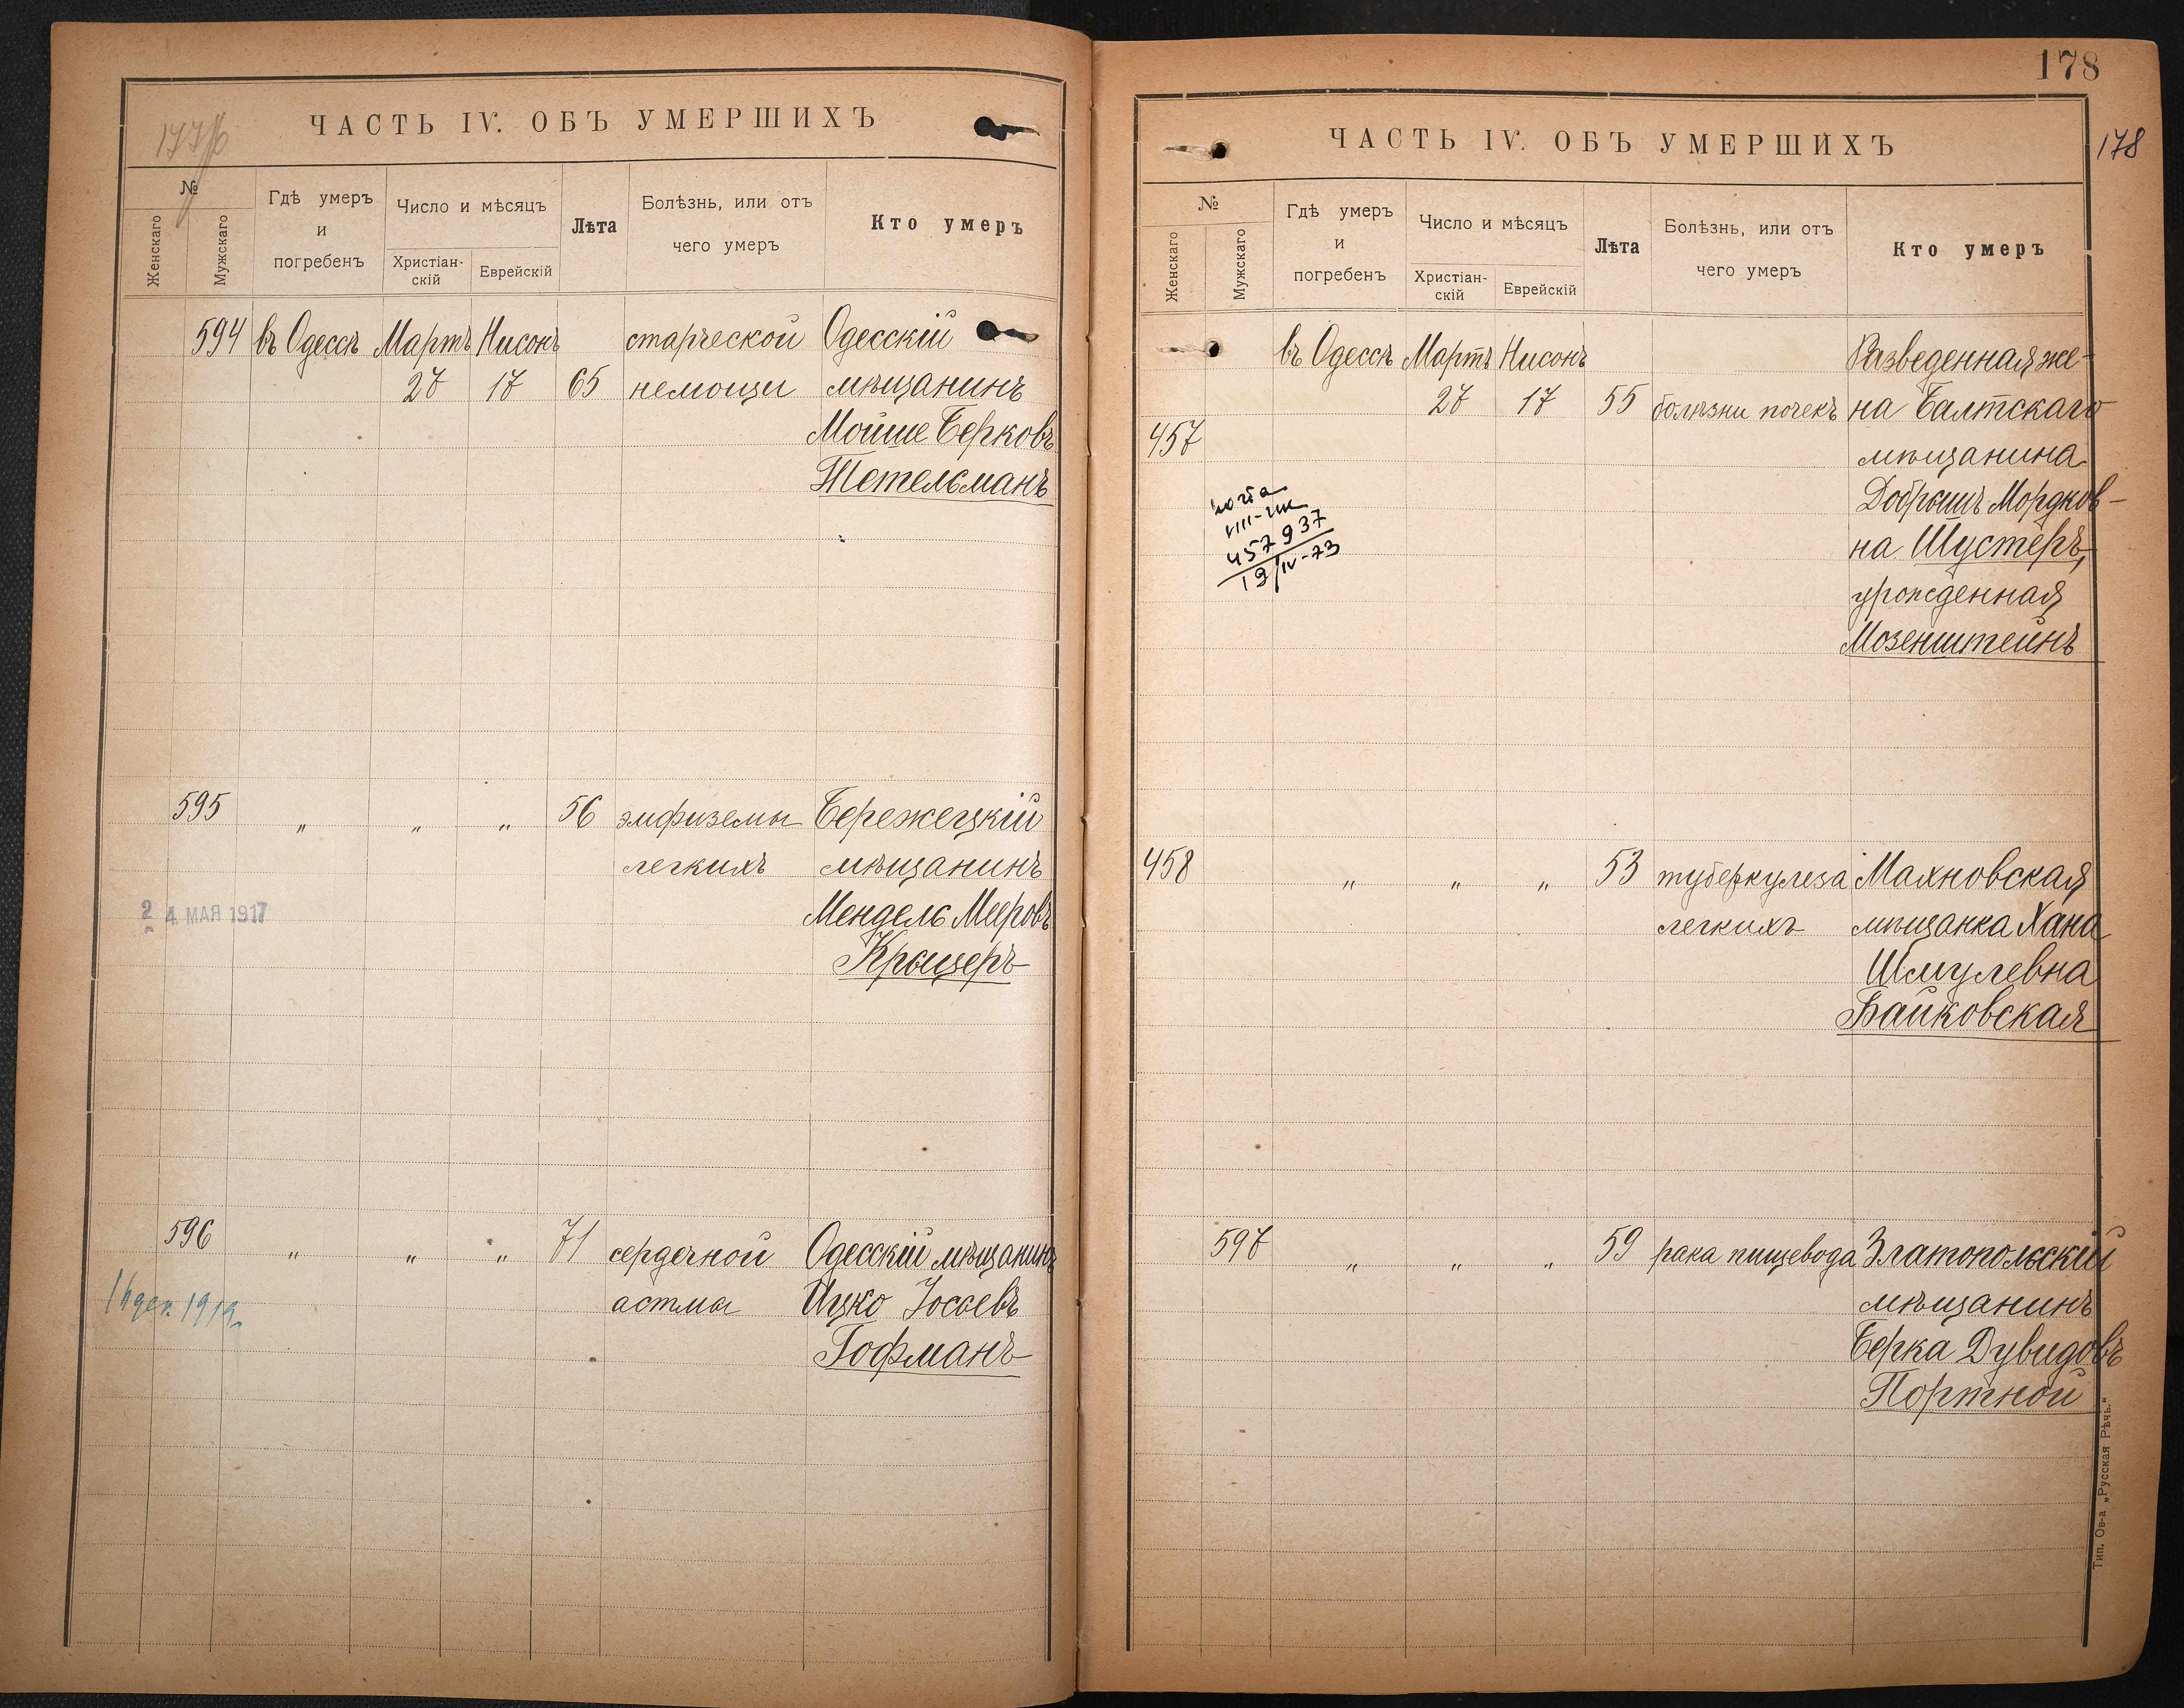 177 об
ЧАСТЬ IV. ОБЪ УМЕРШИХЪ
№
Женскаго
Мужскаго
Гдѣ умеръ
и
погребенъ
Число и мѣсяцъ
Христіан-
скій
Еврейскій
Лѣта
Болѣзнь, или отъ
чего умеръ
Кто умеръ
594 въ Одессѣ Мартъ Нисонъ старческой Одесскій
27 17 65 немощи мѣщанинъ
Мойше Берковъ
Тетельманъ
595 " " " 56 эмфиземы Бережецкій
легкихъ мѣщанинъ
24 МАЯ 1917
Мендель Мееровъ
Крыцеръ
596 " " " 71 сердечной Одесскій мѣщанинъ
16 дек. 1919
астмы Ицко Іосьевъ
Гофманъ
178
178
ЧАСТЬ IV. ОБЪ УМЕРШИХЪ
№
Женскаго
Мужскаго
Гдѣ умеръ
и
погребенъ
Число и мѣсяцъ
Христіан-
скій
Еврейскій
Лѣта
Болѣзнь, или отъ
чего умеръ
Кто умеръ
въ Одессѣ Мартъ Нисонъ Разведенная же-
27 17 55 болѣзни почекъ на Балтскаго
457 мѣщанина
Добрышъ Мордков-
на Шустеръ,
урожденная
Мозенштейнъ
457937
19/IV-73
458 " " " 53 туберкулеза Махновская
легкихъ мѣщанка Хана
Шмулевна
Байковская
597 " " " 59 рака пищевода Златопольскій
мѣщанинъ
Берка Дувидовъ
Портной
Тип. Ов-а „Русская Рѣчь.“